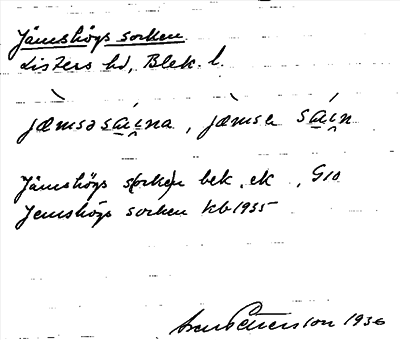 Jämshögs socken
Listers hd, Blek. l.
jæ̀msəsáina, jæ̀msə sáin
Jämshögs s(ocke)n bek. ek , G10
Jemshögs socken kb 1935
1936